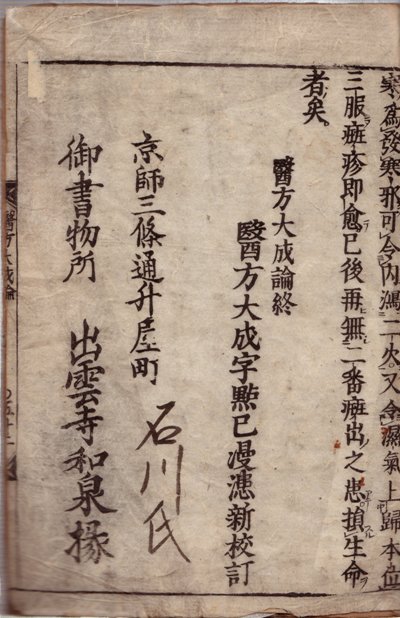 寒爲發寒邪可令内瀉二火又令濕氣上歸本位
三服癍疹即愈已後再無二番癍出之患損生命
者矣
醫方大成論終
醫方大成字點已漫漶新校訂
京師三條通升屋町
石川氏
御書物所 出雲寺和泉掾
醫方大成論